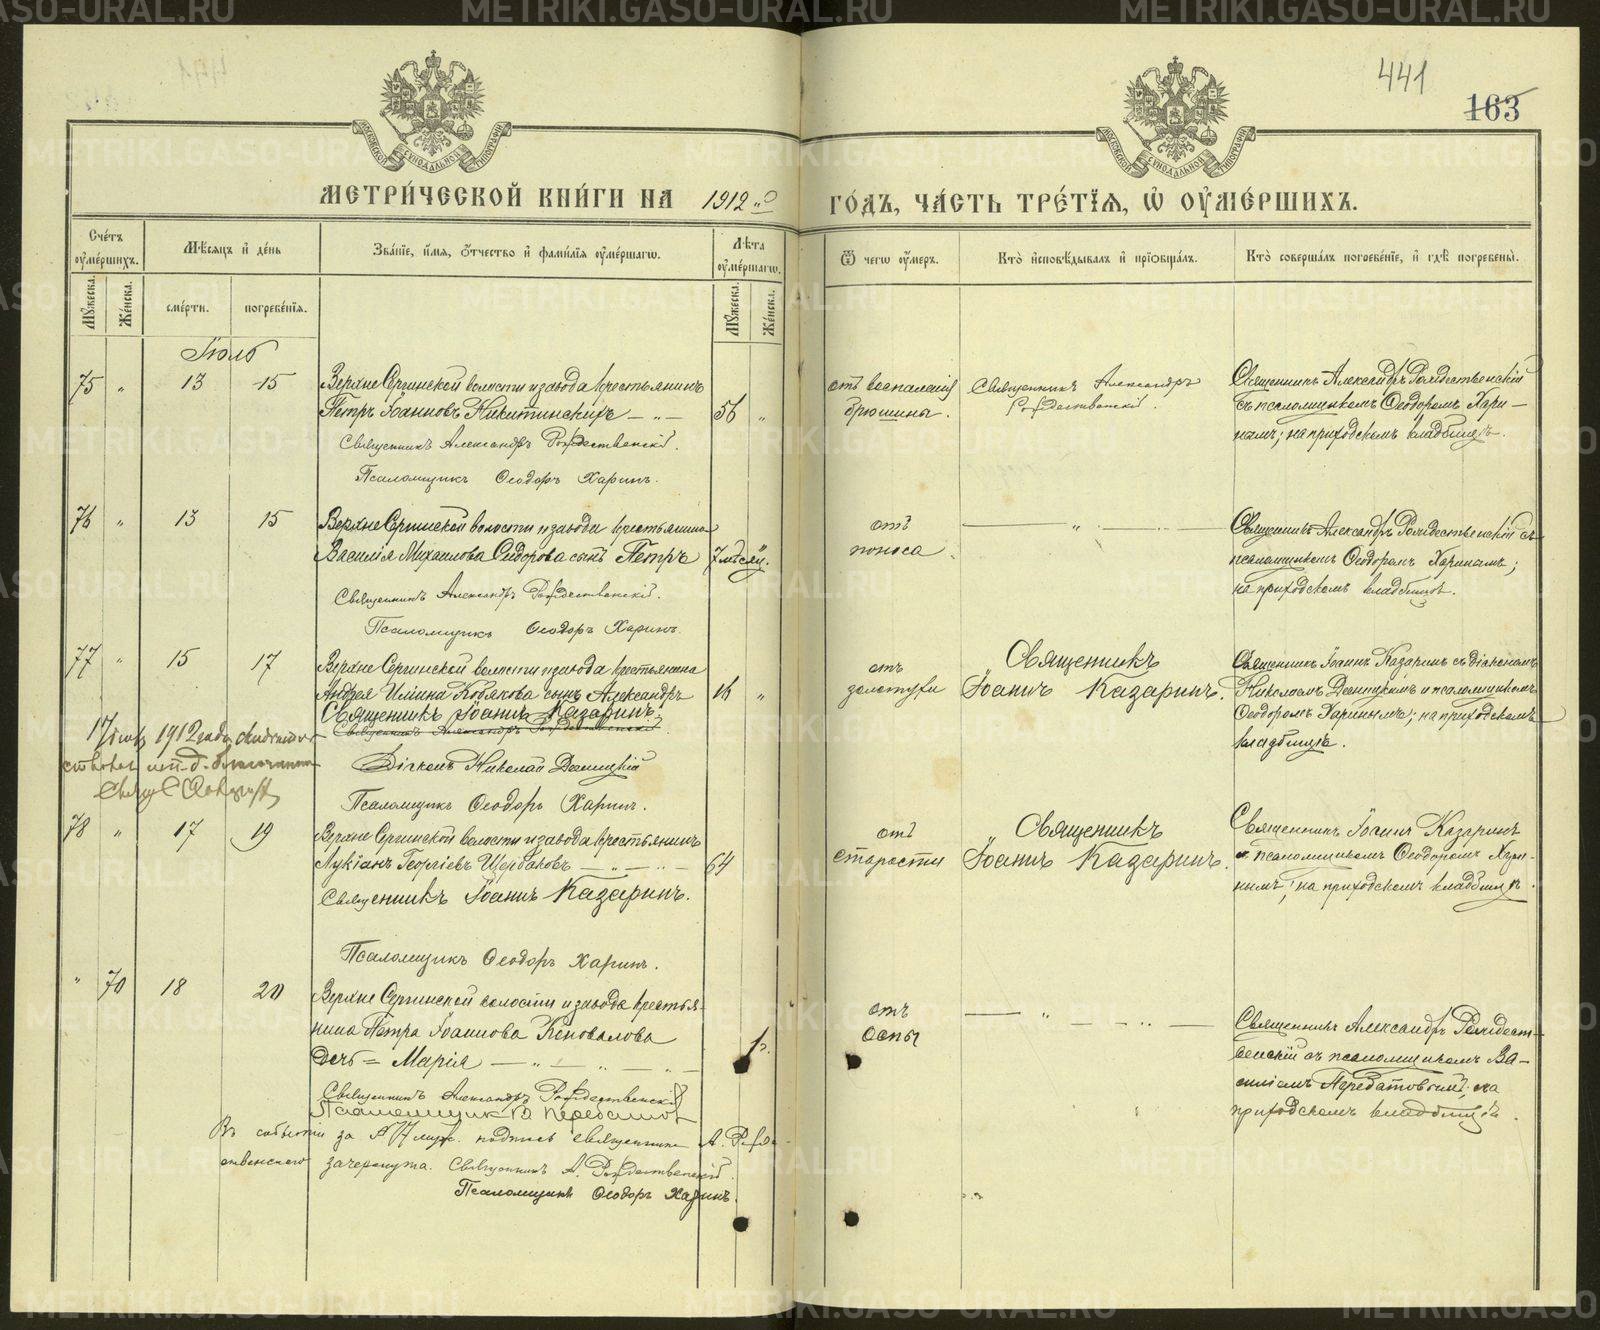 441
163
МОСКОВСКОЙ СѴНОДАЛЬНОЙ ТИПОГРАФІИ
МОСКОВСКОЙ СѴНОДАЛЬНОЙ ТИПОГРАФІИ
МЕТРИ́ЧЕСКОЙ КНИ́ГИ НА 1912го ГО́ДЪ, ЧА́СТЬ ТРЕ́ТІѦ, Ѡ҆ ОУ҆МЕ́РШИХЪ.
Сче́тъ оу҆ме́ршихъ.
Мѣ́сяцъ и҆ де́нь
Зва́ніе, и҆́мя, ѻ҆́тчество и҆ фами́лія оу҆ме́ршагѡ.
Лѣ́та оу҆ме́ршагѡ.
Ѿ чегѡ̀ оу҆́меръ.
Кто̀ и҆сповѣ́дывалъ и҆ пріѻбща́лъ.
Кто̀ соверша́лъ погребе́ніе, и҆ гдѣ̀ погребены̀.
Мꙋ́жеска.
Же́нска.
сме́рти.
погребе́нія.
Мꙋ́жеска.
Же́нска.
Іюль
75 " 13 15 Верхне Сергинской волости и завода крестьянинъ
Петръ Іоанновъ Никитинскихъ — " — 56 "
Священникъ Александръ Рождественскій.
Псаломщикъ Ѳеодоръ Харинъ.
отъ воспаленія
брюшины.
Священникъ Александръ
Рождественскій.
Священникъ Александръ Рождественскій
съ псаломщикомъ Ѳеодоромъ Хари-
нымъ; на приходскомъ кладбищѣ.
76 " 13 15 Верхне Сергинской волости и завода крестьянина
Василія Михаилова Сидорова сынъ Петръ 7 мѣсяц.
Священникъ Александръ Рождественскій.
Псаломщикъ Ѳеодоръ Харинъ.
отъ
поноса
— " —
Священникъ Александръ Рождественскій съ
псаломщикомъ Ѳеодоромъ Харинымъ;
на приходскомъ кладбищѣ.
77 " 15 17 Верхне Сергинской волости и завода крестьянина
Андрея Илiина Кобякова сынъ Александръ 16 "
Священникъ Іоаннъ Казаринъ.
Священникъ Александръ Рождественскій.
Діаконъ Николай
Псаломщикъ Ѳеодоръ Харинъ.
17 іюля 1912 года
отъ
золотухи
Священникъ
Іоаннъ Казаринъ.
Священникъ Іоаннъ Казаринъ съ діакономъ
Николаемъ и псаломщикомъ
Ѳеодоромъ Харинымъ; на приходскомъ
кладбищѣ.
78 " 17 19 Верхне Сергинской волости и завода крестьянинъ
Лукіанъ Георгіевъ Щербаковъ — " — " — 64
Священникъ Іоаннъ Казаринъ.
Псаломщикъ Ѳеодоръ Харинъ.
отъ
старости
Священникъ
Іоаннъ Казаринъ.
Священникъ Іоаннъ Казаринъ
съ псаломщикомъ Ѳеодоромъ Хари-
нымъ; на приходскомъ кладбищѣ.
" 70 18 20 Верхне Сергинской волости и завода крестья-
нина Петра Іоаннова Коновалова
дочь = Марія — " — " — " — 1 г.
Священникъ Александръ Рождественскій
Псаломщикъ В Перебатов
отъ
оспы
— " — " —
Священникъ Александръ Рождест-
венскій съ псаломщикомъ Ва-
силіемъ Перебатовымъ; на
приходскомъ кладбищѣ.
Въ событіи за № 77 муж. подпись священника А. Рожд-
ственскаго зачеркнута. Священникъ А. Рождественскій.
Псаломщикъ Ѳеодоръ Харинъ.
METRIKI.GASO-URAL.RU